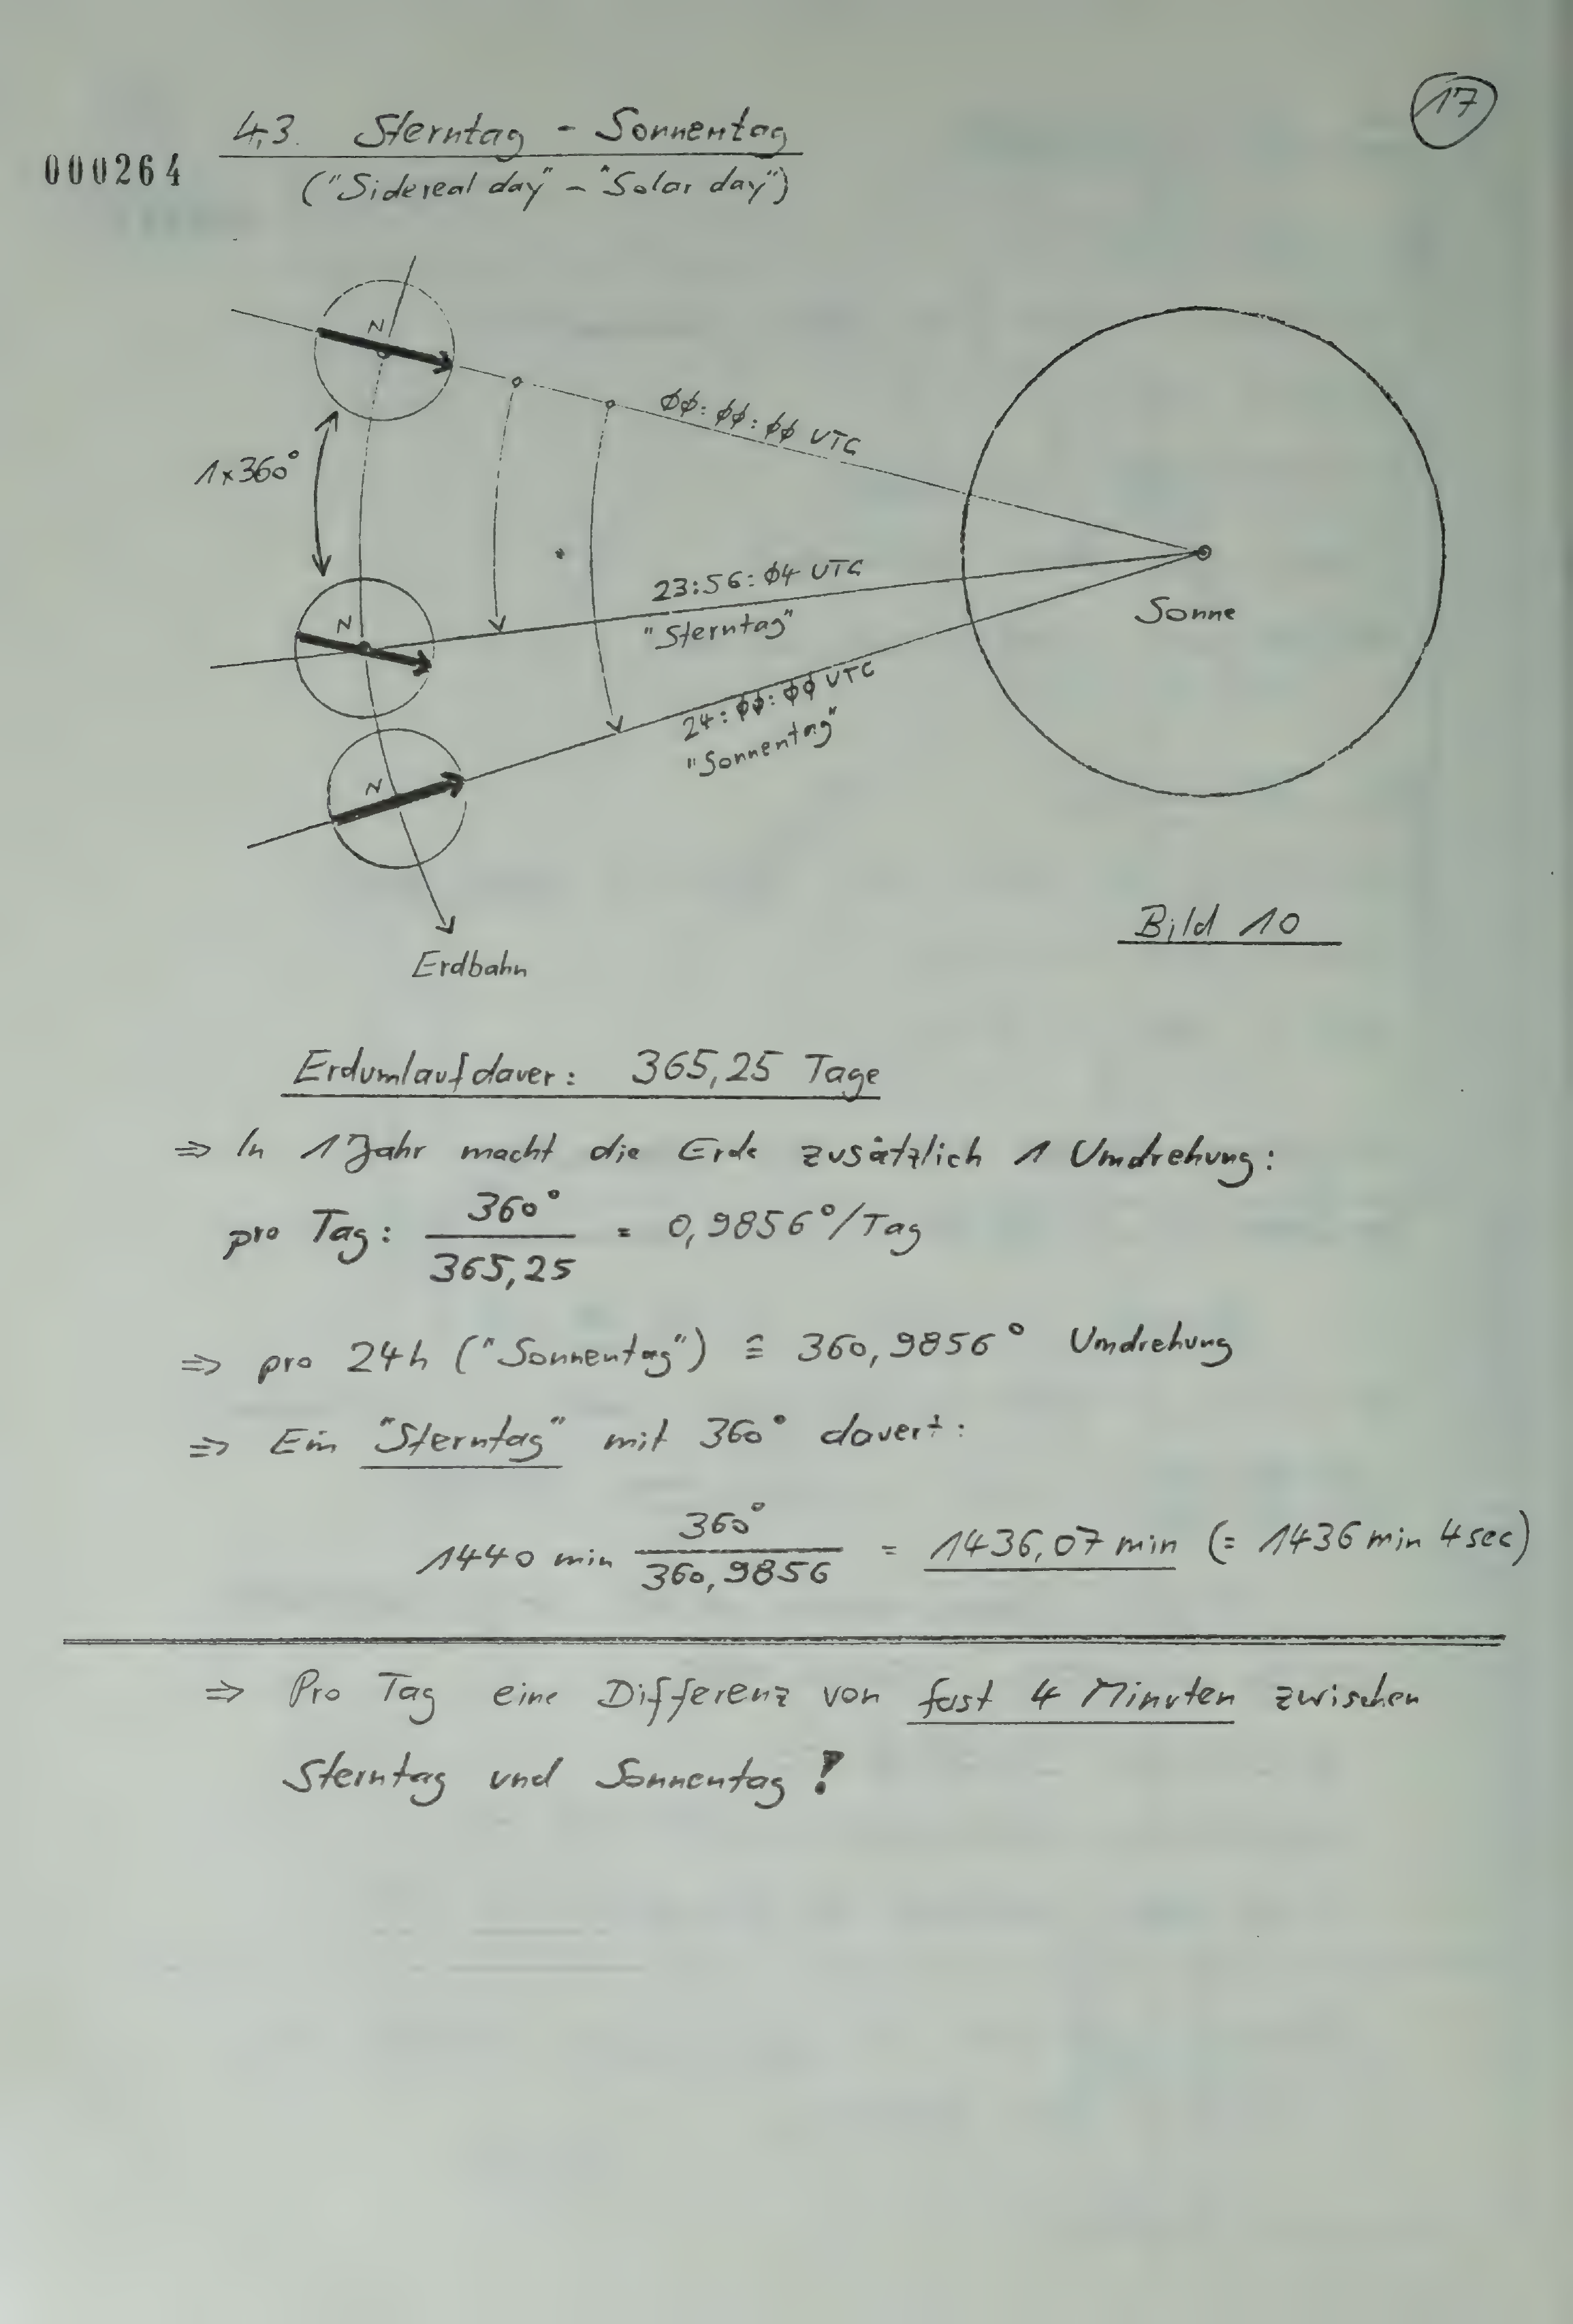 17
4.3. Sterntag - Sonnentag
000264
("Sidereal day" - "Solar day")
N
ØØ:ØØ:ØØ UTC
1×360°
23:56:Ø4 UTC
"Sterntag"
Sonne
N
24:ØØ:ØØ UTC
"Sonnentag"
N
Bild 10
Erdbahn
Erdumlaufdauer: 365,25 Tage
⇒ In 1 Jahr macht die Erde zusätzlich 1 Umdrehung:
pro Tag: 360° / 365,25 = 0,9856°/Tag
⇒ pro 24h ("Sonnentag") ≙ 360,9856° Umdrehung
⇒ Ein "Sterntag" mit 360° dauert:
1440 min 360° / 360,9856 = 1436,07 min (= 1436 min 4 sec)
⇒ Pro Tag eine Differenz von fast 4 Minuten zwischen
Sterntag und Sonnentag!